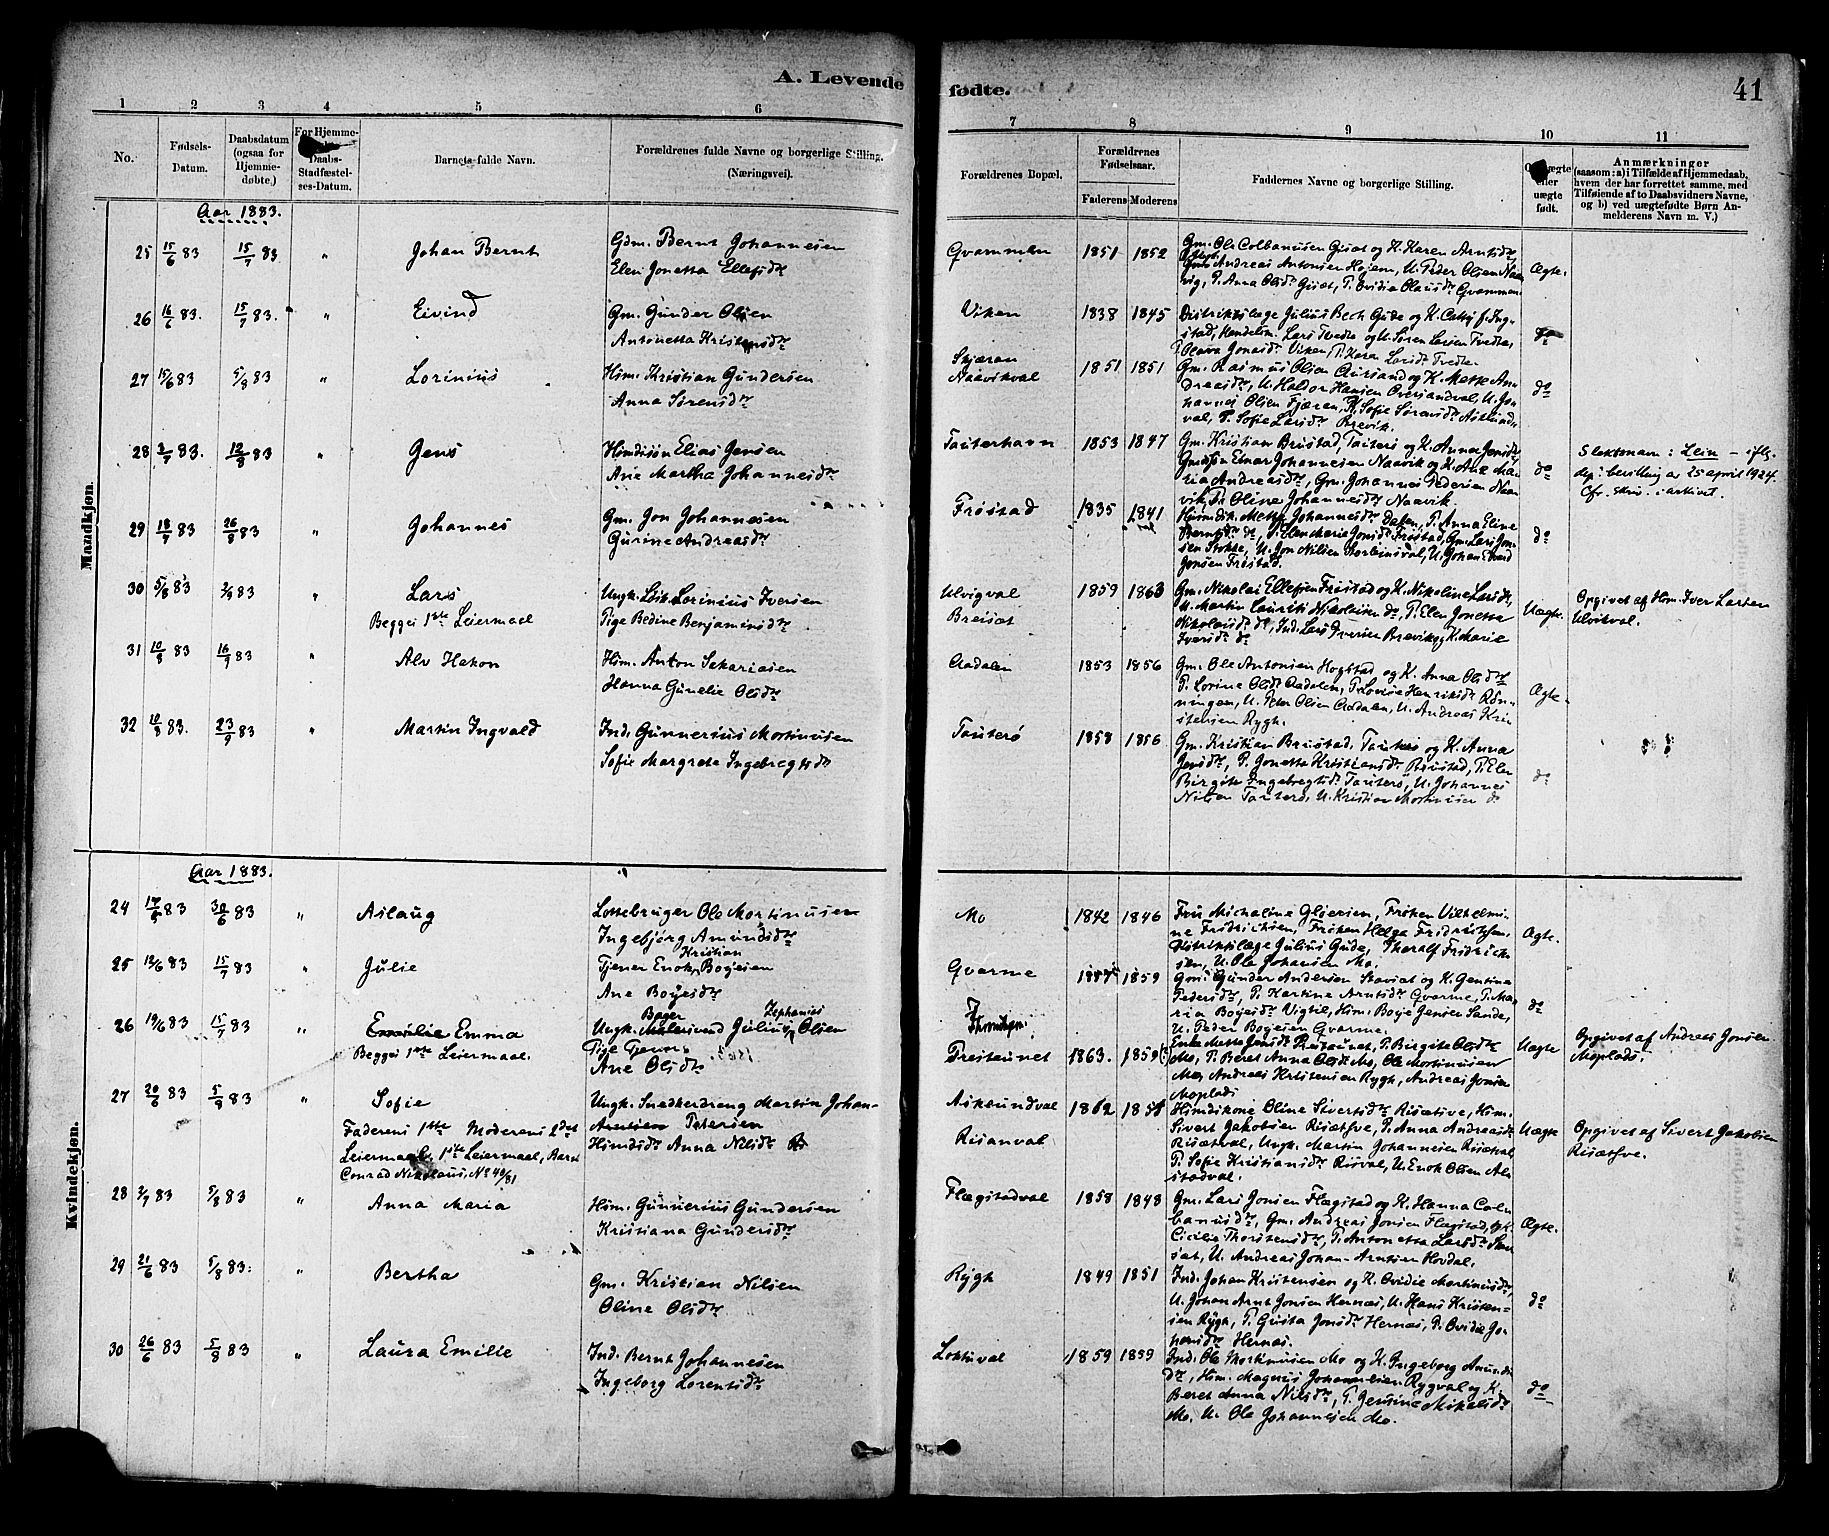 A. Levende
fødte.
41
1 2 3 4 5 6
7 8 9 10 11
No.
Fødsels-Datum.
Daabsdatum (ogsaa for Hjemme-døbte.)
For Hjemme-
Daabs-Stadfæstel-ses-Datum.
Barnets fulde Navn.
Forældrenes fulde Navne og borgerlige Stilling. (Næringsvei).
Forældrenes Bopæl.
Forældrenes Fødselsaar.
Faderens Moderens
Faddernes Navne og borgerlige Stilling.
eller uægte født.
Anmærkninger
(saasom: a) i Tilfælde af Hjemmedaab,
hvem der har forrettet samme, med
Tilføiende af to Daabsvidners Navne,
og b) ved uægtefødte Børn An-
melderens Navn m. V.)
Mandkjøn.
Aar 1883.
25 15/6 83 15/7 83 " Johan Bernt
Gdm. Bernt Johannesen
Elen Jonetta Ellefsdtr
Gvammen 1851 1852
Gm. Ole Colbanusen Gisat og K. Karen Arntsdtr
Andreas Antonsen Hojem, U. Peder Olsen Naa-
vig, P. Anna Olsdtr Gisat, P. Ovidia Olausdtr Gvammen
Ægte.
26 16/6 83. 15/7 83. " Eivind
Gm. Gunder Olsen
Antonetta Kristensdtr
Viken 1838 1845
Distriktslæge Julius Bech Gude og K. Cathj f. Ing-
stad, Handelsm. Lars Tvedte og U. Søren Larsen Tvedte,
P. Olava Jonasdtr Viken, P. Karen Larsdtr Tvedte
do
27 15/6 83 5/8 83 " Lorinius
Hsm. Kristian Gundersen
Anna Sørensdtr
Skjæran
Naavikval 1851 1851
Gm. Rasmus Olsen Aursand og K. Mette An-
dreasdtr, U. Haldor Hansen Oversandval, U. Jo-
hannes Olsen Fjæran, P. Sofie Sørensdtr Asklund-
val, P. Sofie Larsdtr Brevik.
do
28 2/7 83. 12/8 83 " Jens
Hsmdsøn Elias Jensen
Ane Martha Johannesdtr
Tauterhavn 1853 1847
Gm. Kristian Brustad, Tauterø og K. Anna Jensdtr
Gmdsøn Einar Johannesen Naavik og K. Ane Ma-
ria Andreasdtr, Gm. Johannes Pedersen Naa-
vik, P. Oline Johannesdtr Naavik.
do
Slektsnavn: Lein - iflg.
dep: bevilling av 25 april 1924.
Cfr. skriv. i arkivet.
29 18/7 83 26/8 83 " Johannes
Gm. Jon Johannesen
Gurine Andreasdtr
Frøstad 1835 1841
Hsmdsk. Mette Johannesdtr Dalen, P. Anna Eline
Berntsdtr do, P. Elen Marie Jonsdtr Frøstad, Gm. Lars Jon-
sen Stokke, U. Jon Nilsen Thorleinsval, U. Johan Evend
Jonsen Frøstad.
do
30 5/8 83 2/9 83 " Lars
Begges 1ste Leiermaal
Ungk. Løsk. Lorinius Iversen
Pige Bedine Benjaminsdtr
Ulvigval
Breisat 1859 1863
Gm. Nikolai Ellefsen Frøstad og K. Nikoline Larsdtr,
U. Martin Laurits Nikolaisen do, P. Elen Jonetta
Nikolaisdtr do, Ind. Lars Iversen Brevik og K. Marie
Iversdtr do
Uægte.
Opgivet af Hsm. Iver Larsen
Ulvikval.
31 10/8 83 16/9 83 " Alv Hakon
Hsm. Anton Sakariasen
Hanna Gunelie Olsdtr
Aadalen 1853 1856
Gm. Ole Antonsen Hogstad og K. Anna Olsdtr
P. Lorine Olsdtr Aadalen, P. Lovise Henriksdtr Røn-
ningen, U. Peter Olsen Aadalen, U. Andreas Kri-
stensen Rygh.
Ægte.
32 10/8 83. 23/9 83 " Martin Ingvald
Ind. Gunnerius Martinusen
Sofie Margrete Ingebrigtsdtr
Tauterø 1858 1856
Gm. Kristian Brustad, Tauterø og K. Anna
Jensdtr, P. Jonetta Kristiansdtr Brustad, P. Elen
Birgite Ingebregtsdtr Tauterø, U. Johannes
Nilsen Tauterø, U. Kristian Martinusen do
do
Kvindekjøn.
Aar 1883.
24 17/5 83 30/6 83 " Aslaug
Lottebruger Ole Martinusen
Ingebjørg Amundsdtr
Mo 1842 1846
Fru Michaline Gløersen, Frøken Vilhelmi-
ne Fridrichsen, Frøken Helga Fridrichsen,
Distriktslæge Julius Gude, Tharalf Fridrich-
sen, U. Ole Johansen Mo.
Ægte.
25 12/6 83 15/7 83 " Julie
Tjener Enok Kristian Bogesen
Ane Bogesdtr
Gvarme 1859
Gm. Gunder Andersen Stavsat og K. Gentine
Pedersdtr, P. Martine Arntsdtr Gvarme, P. Ma-
ria Bogesdtr Vigtil, Hsm. Boge Jensen Sande,
U. Peder Bogesen Gvarme.
do
26 19/6 83 15/7 83 " Emilie Emma
Begges 1ste Leiermaal.
Ungk. Bager Julius Zephanias Olsen
Pige Tjener
Ane Olsdtr
Trondhjem
Preistunet 1863. 1859
Enke Mette Jonsdtr Preistunet, P. Birgite Olsdtr
Mo, P. Beret Anna Olsdtr Mo, Ole Martinusen
Mo, Andreas Kristensen Rygh, Andreas Jonsen
Moplads
Uægte
Opgivet af Andreas Jonsen
Moplads.
27 20/6 83 5/9 83 " Sofie
Faderens 1ste Moderens 2det
Leiermaal. 1ste Leiermaal, Barn
Conrad Nikolaus, No 40/81
Ungk. Snedkerdreng Martin Johan
Arntsen Petersen
Hsmdsdtr Anna Nilsdtr
Aiksundval
Risanval 1862
Hsmdskone Oline Sivertsdtr Risætsve, Hsm.
Sivert Jakobsen Risætsve, P. Anna Andreasdtr
Risætval, Ungk. Martin Johannesen Risætval
P. Sofie Kristiansdtr Risval, U. Enok Olsen Al-
stadval.
Uægte
Opgivet af Sivert Jakobsen
Risætsve.
28 2/7 83 5/8 83 " Anna Maria
Hsm. Gunnerius Gundersen
Kristiana Gundersdtr
Flægstadval 1858 1848
Gm. Lars Jonsen Flægstad og K. Hanna Col-
banusdtr, Gm. Andreas Jonsen Flægstad, og K.
Cicilie Thorstensdtr, P. Antonetta Larsdtr
U. Andreas Johan Arntsen Hovdal.
Ægte.
29 21/6 83 5/8 83. " Bertha
Gm. Kristian Nilsen
Oline Olsdtr
Rygh 1849 1851
Ind. Johan Kristensen og K. Ovidie Martinusdtr,
U. Johan Arnt Jonsen Hernæs, U. Hans Kristen-
sen Rygh, P. Gusta Jonsdtr Hernæs, P. Ovidie Jo-
hansdtr Hernæs.
do
30 26/6 83 5/8 83 " Laura Emilie
Ind. Bernt Johannesen
Ingeborg Lorentsdtr
Loktuval 1859 1859
Ind. Ole Martinusen Mo og K. Ingeborg Amunds-
dtr, Hsm. Magnus Johannesen Rygval og K.
Beret Anna Nilsdtr, P. Jensine Mikalsdtr
Mo, U. Ole Johannesen Mo.
do